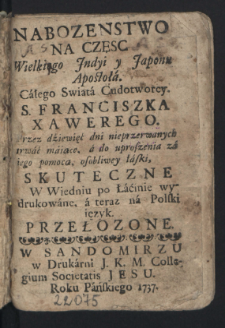 NABOZENSTWO
NA CZESC
Wielkiego Indyi y Japonu
Apostołá.
Cáłego Swiatá Cudotworcy.
S. FRANCISZKA
XAWEREGO.
Przez dźiewięć dni nieprzerwanych
trwáć máiące, á do uproszenia zá
iego pomocą, osobliwey łáski,
SKUTECZNE
W Wiedniu po Łáćinie wy-
drukowáne, á teraz ná Polski
ięzyk.
PRZEŁOZONE.
W SANDOMIRZU
w Drukárni J. K. M. Colle-
gium Societatis JESU.
Roku Páńskiego 1737.
22075